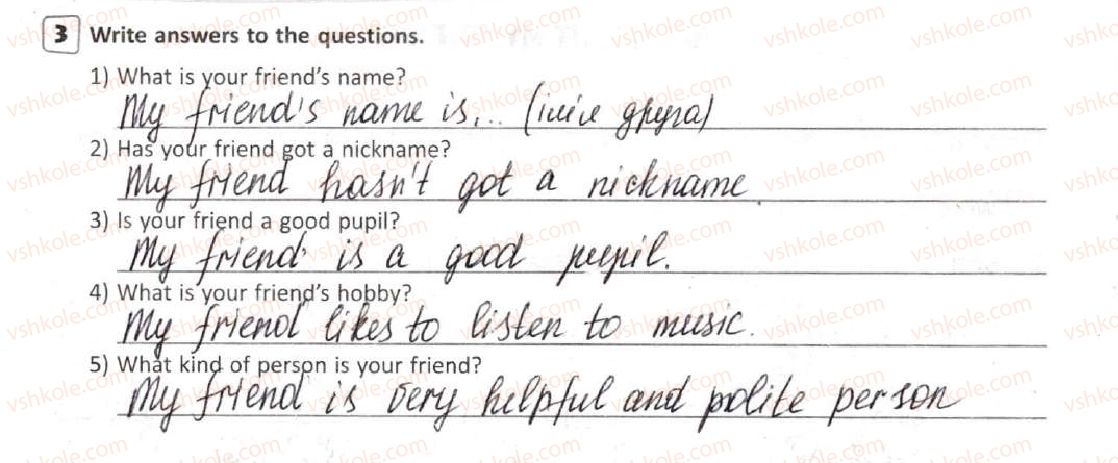 3 Write answers to the questions.
1) What is your friend's name?
My friend's name is... (ім'я друга)
2) Has your friend got a nickname?
My friend hasn't got a nickname.
3) Is your friend a good pupil?
My friend is a good pupil.
4) What is your friend's hobby?
My friend likes to listen to music.
5) What kind of person is your friend?
My friend is very helpful and polite person